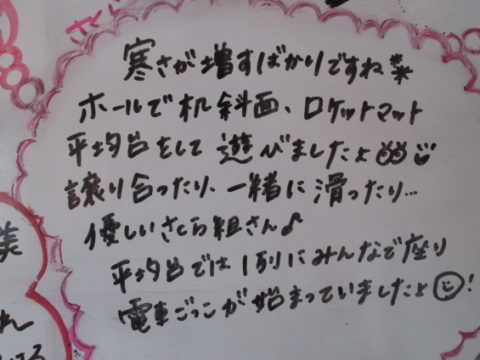 寒さが増すばかりですね
ホールで机斜面、ロケットマット
平均台をして遊びましたよ
譲り合ったり、一緒に滑ったり…
優しいさくら組さん♪
平均台では1列にみんなで座り
電車ごっこが始まっていましたよ!
美